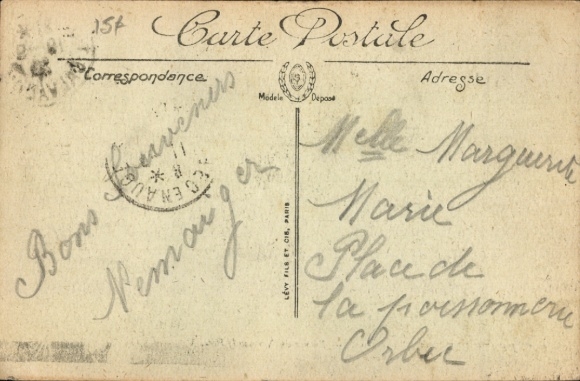 15f
Carte Postale
Correspondance
Adresse
Modèle Déposé
Bons Souvenirs
LÉVY FILS ET CIE, PARIS
Melle Marguerite
Marie
Place de
la poissonnerie
Orbec